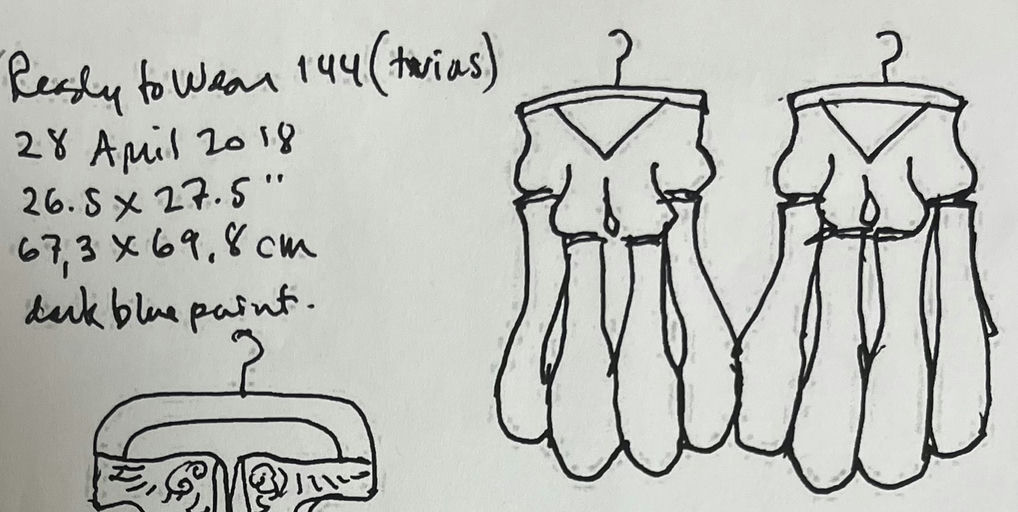 Ready to Wear 144 (twins)
28 April 2018
26.5 x 27.5"
67,3 x 69,8 cm
dark blue paint.